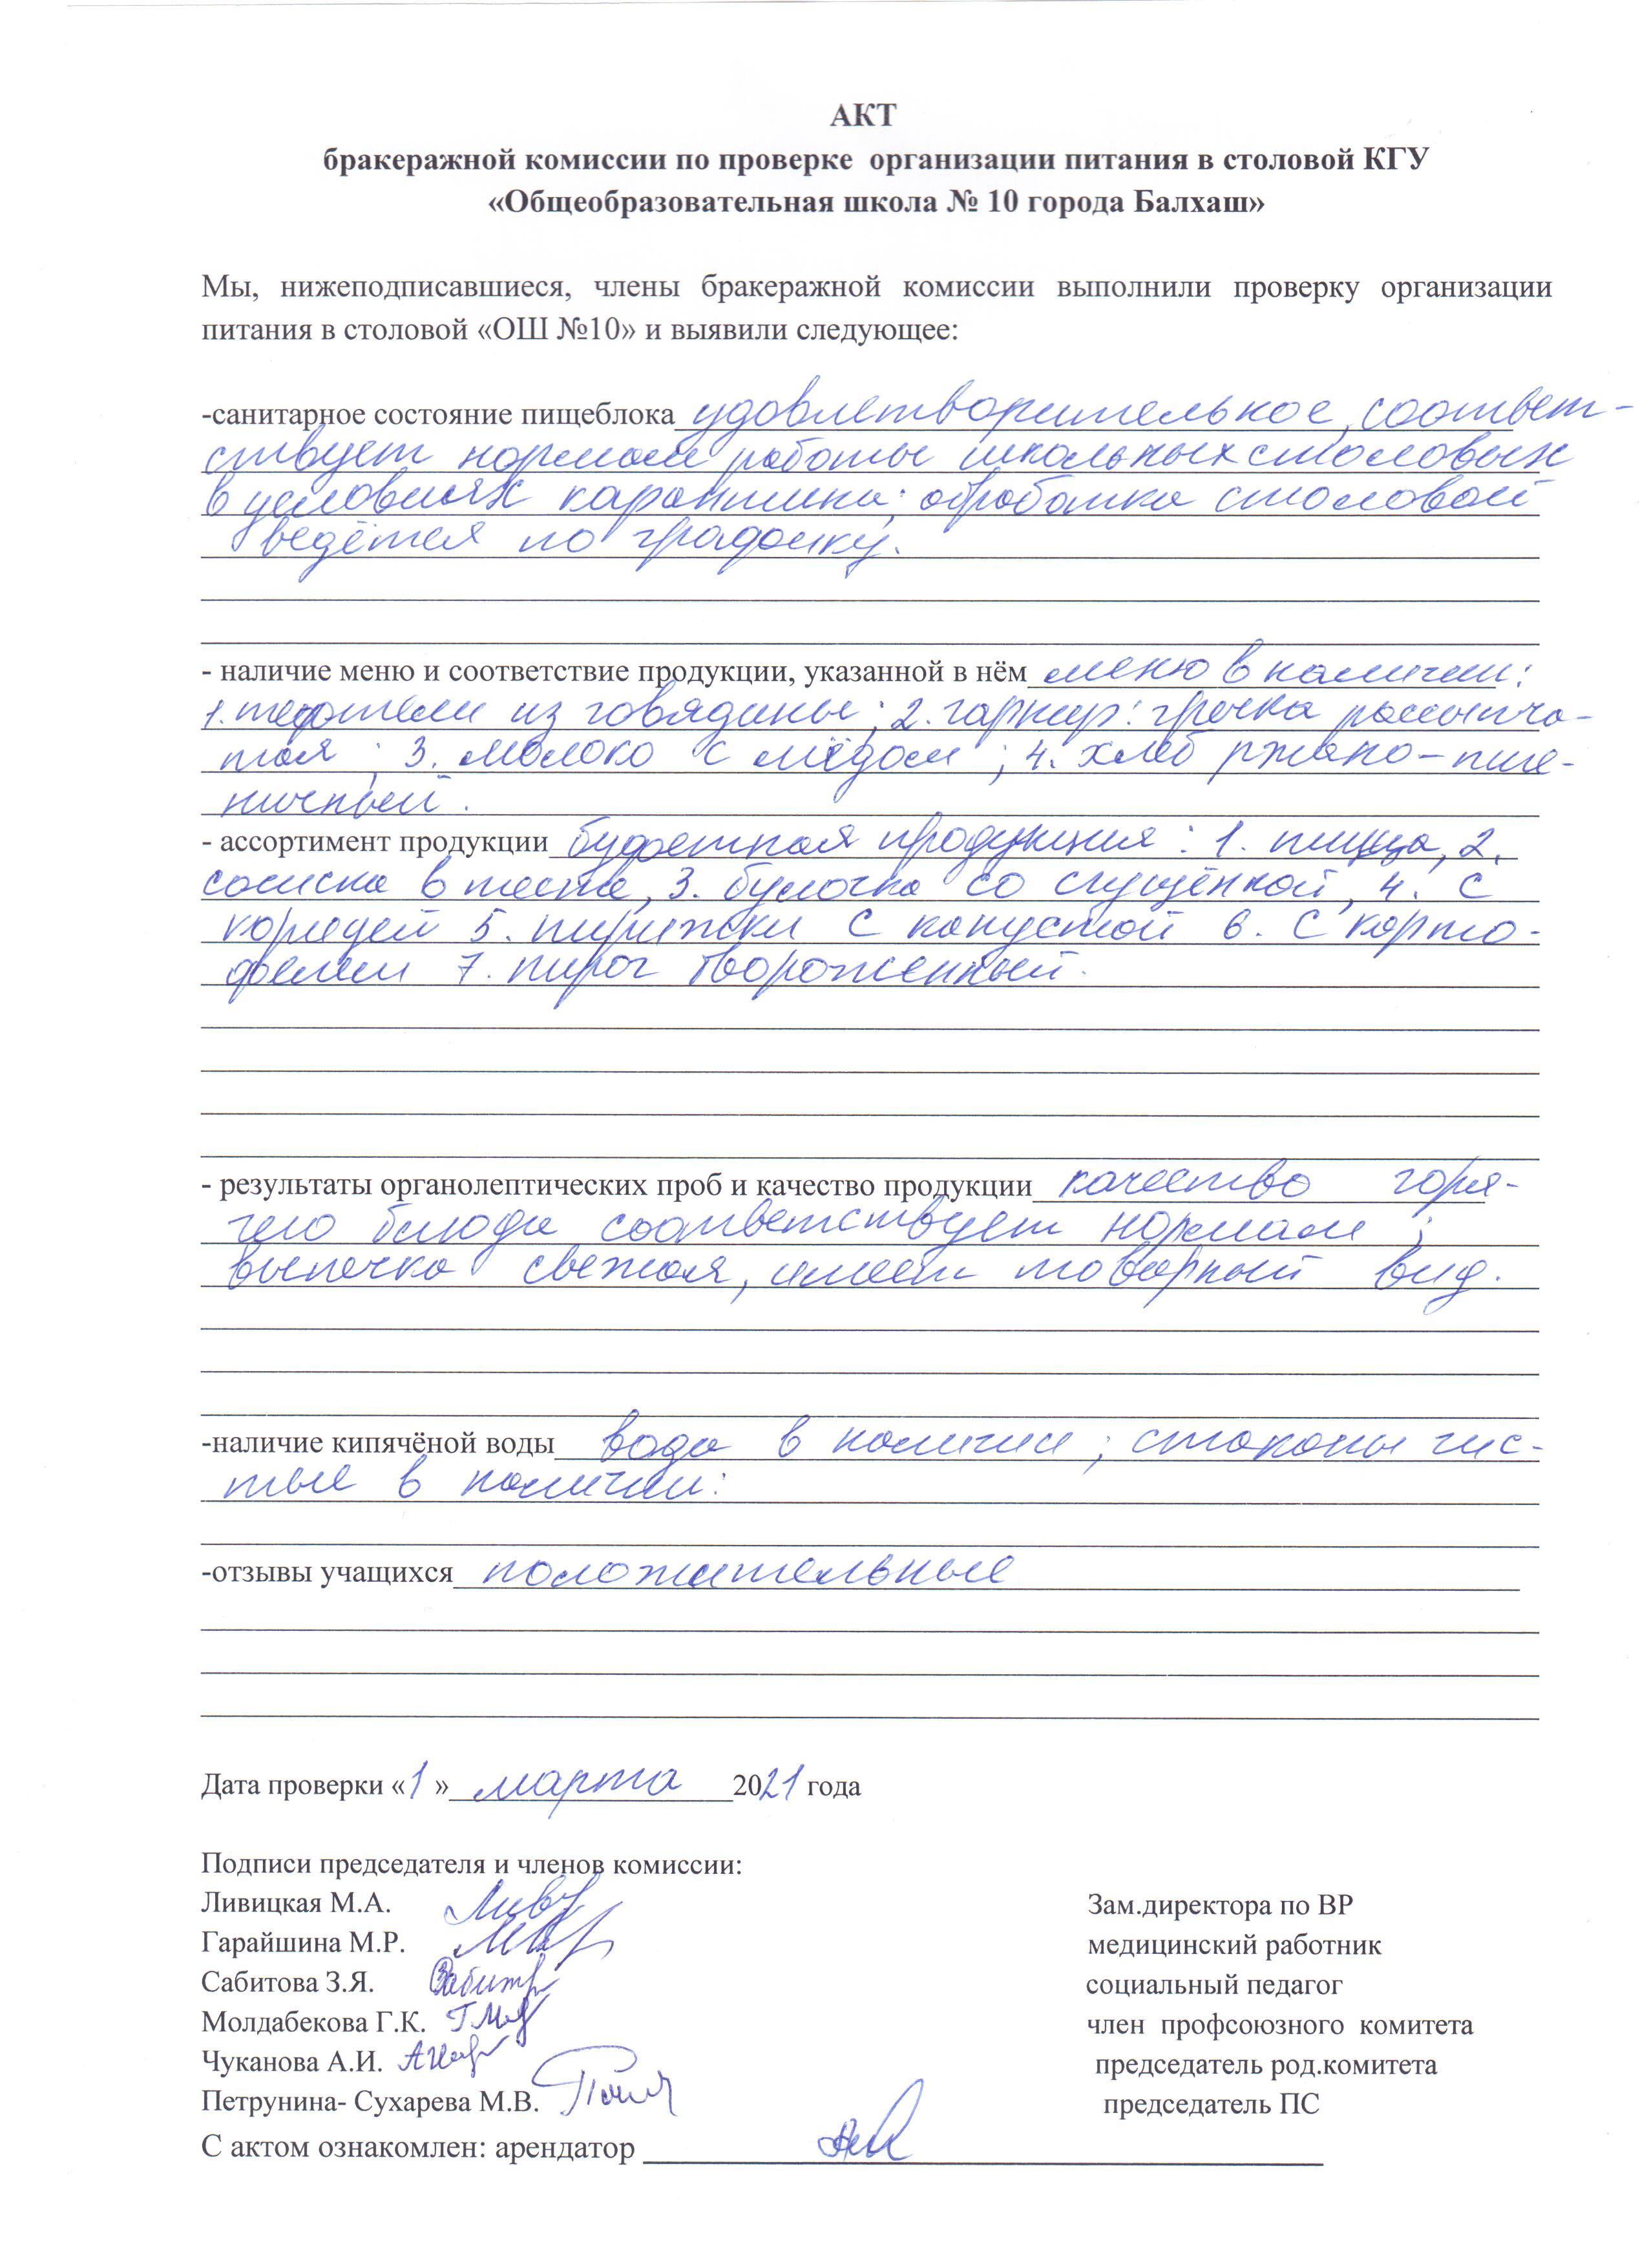 АКТ
бракеражной комиссии по проверке организации питания в столовой КГУ
«Общеобразовательная школа № 10 города Балхаш»
Мы, нижеподписавшиеся, члены бракеражной комиссии выполнили проверку организации
питания в столовой «ОШ №10» и выявили следующее:
-санитарное состояние пищеблока удовлетворительное, соответ-
ствует нормам работы школьных столовых
в условиях карантина; обработка столовой
ведётся по графику.
- наличие меню и соответствие продукции, указанной в нём меню в наличии:
1. тефтели из говядины; 2. гарнир: гречка рассыпча-
тая; 3. молоко с мёдом; 4. хлеб ржано-пше-
ничный.
- ассортимент продукции буфетная продукция: 1. пицца, 2.
сосиска в тесте, 3. булочка со сгущёнкой, 4. с
корицей 5. пирожки с капустой 6. с карто-
фелем 7. пирог творожженный.
- результаты органолептических проб и качество продукции качество горя-
чего блюда соответствует нормам;
выпечка свежая, имеет товарный вид.
-наличие кипячёной воды вода в наличии; стаканы чис-
тые в наличии.
-отзывы учащихся положительные
Дата проверки «1» марта 2021 года
Подписи председателя и членов комиссии:
Ливицкая М.А. Зам.директора по ВР
Гарайшина М.Р. медицинский работник
Сабитова З.Я. социальный педагог
Молдабекова Г.К. член профсоюзного комитета
Чуканова А.И. председатель род.комитета
Петрунина- Сухарева М.В. председатель ПС
С актом ознакомлен: арендатор